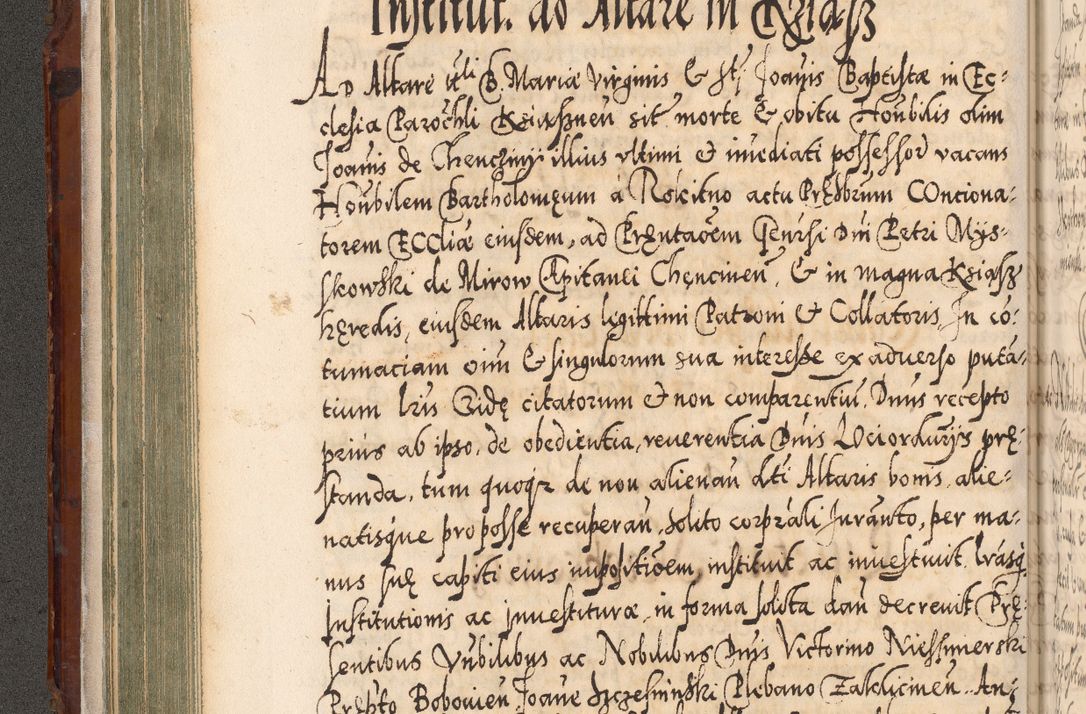 Institut. ad Altare in Xiąsz
Ad Altare tt̃li B. Mariæ Virginis & St̃j Joañis Baptistæ in Ec-
clesia Paroch̃li Xiąsznen̄ sit morte & obitu Hoñbilis olim
Joañis de Chenczinij illius vltimi & im̃ediati possessor̃ vacans
Hoñbilem Bartholomęum à Rokitno actu Pręs̃brum Conciona-
torem Eccliæ eiusdem, ad Pręntaõem Gen̄rsi Dñi Petri Mÿs-
skowski de Mirow Capitanei Chencinen̄, & in magna Xsiasz
hęredis, eiusdem Altaris legittimi Patroni & Collatoris. In cõ-
tumaciam oĩm & singulorum sua interesse ex aduerso putã-
tium lr̃is Eidę citatorum & non comparentiũ. Dñus recepto
priùs ab ipso, de obedientia, reuerentia Dñis Lociordũrÿs prę-
standa, tum quoqʒ de non alienañ dc̃ti Altaris bonis, alie-
natisque pro posse recuperañ, solito corp̃rali Jurañto, per ma-
nus suę capiti eius impositiõem, instituit ac inuestiuit, lr̃asq̃
Institutionis ac inuestituræ, in forma solita dañ decreuit Prę-
sentibus Vñbilibus ac Nobilibus Dñis Victorino Niessmierski
Pręp̃to Bobouien̄ Joañe Szczesminski Plebano Zaklicinen̄. An-